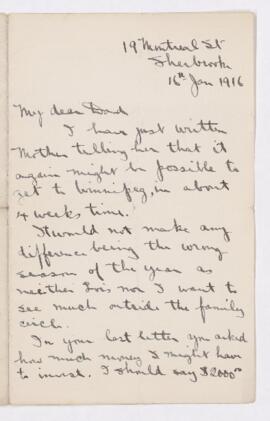 19 Montreal St
Sherbrooke
16th Jan 1916
My dear Dad
I have just written
Mother telling her that it
again might be possible to
get to Winnipeg, in about
4 weeks time.
It would not make any
difference being the wrong
season of the year as
neither Lois nor I want to
see much outside the family
circle.
In your last letter you asked
how much money I might have
to invest. I should say $2000